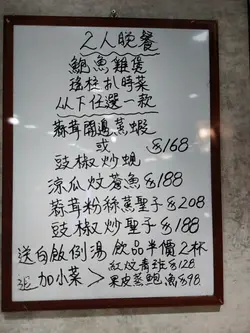 2人晚餐
鮑魚雞煲
瑤柱扒時菜
以下任選一款
蒜茸開邊蒸蝦
或 $168
豉椒炒蜆
涼瓜炆䱽魚 $188
蒜茸粉絲蒸聖子 $208
豉椒炒聖子 $188
送白飯例湯 飲品半價2杯
加小菜 > 紅炆 $128
果皮蒸鮑魚 $98